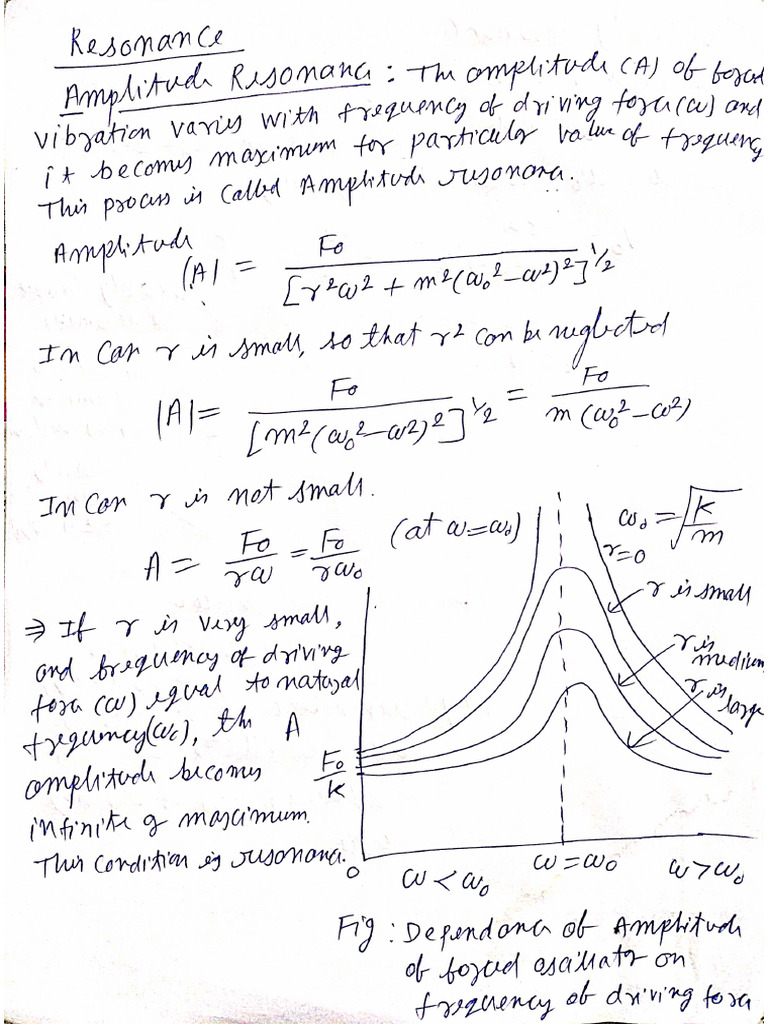 Resonance
Amplitude Resonance : The amplitude (A) of forced
vibration varies with frequency of driving force (ω) and
it becomes maximum for particular value of frequency
This process is called Amplitude resonance.
Amplitude
|A| = F₀ / [r²ω² + m²(ω₀² - ω²)²]^1/2
In Case r is small, so that r² can be neglected
|A| = F₀ / [m²(ω₀² - ω²)²]^1/2 = F₀ / m(ω₀² - ω²)
In Case r is not small.
A = F₀/rω = F₀/rω₀ (at ω = ω₀)
⇒ If r is very small,
and frequency of driving
force (ω) equal to natural
frequency (ω₀), the A
amplitude becomes
infinite & maximum.
This condition is resonance.
ω₀ = √k/m
r=0
r is small
r is medium
r is large
F₀/k
0
ω < ω₀
ω = ω₀
ω > ω₀
Fig : Dependance of Amplitude
of forced oscillator on
frequency of driving force